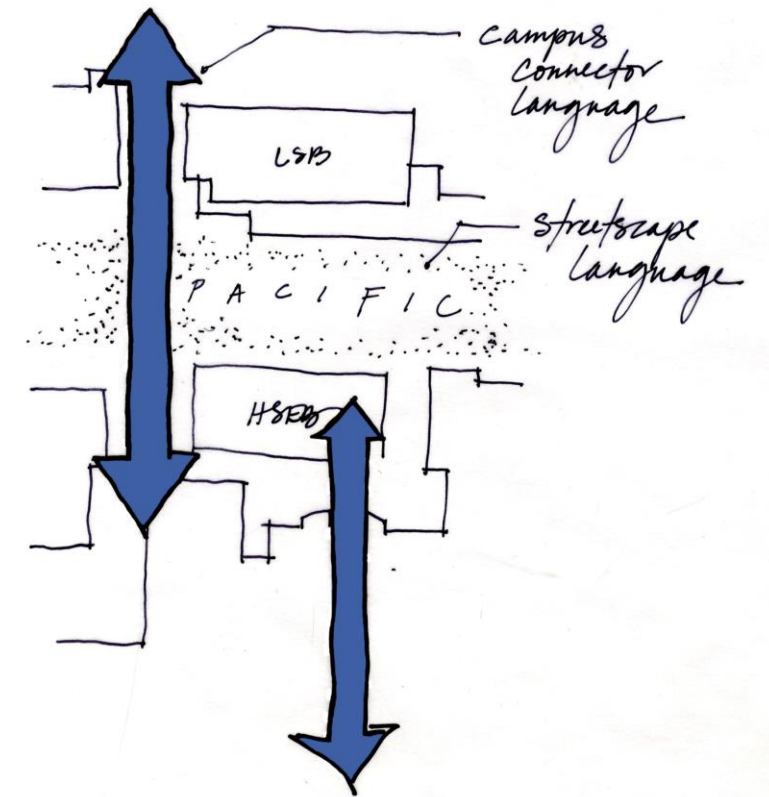 Campus
Connector
Language
LSB
Streetscape
Language
PACIFIC
HSEB